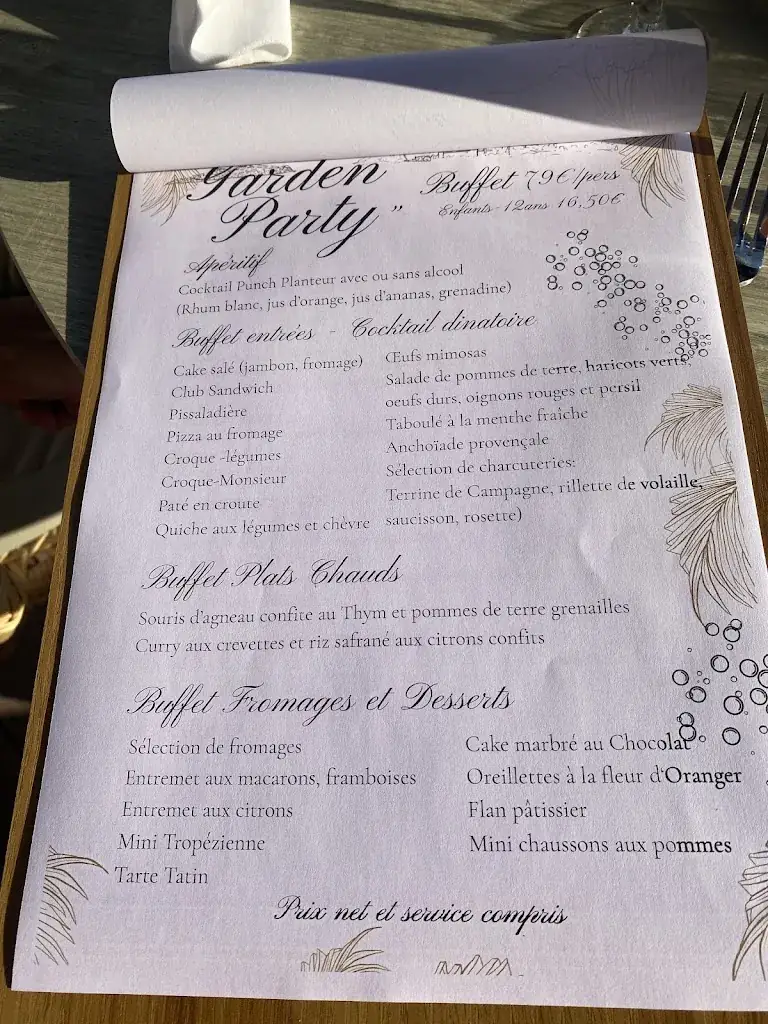 Garden
Party "
Buffet 79€/pers
Enfants -12ans 16,50€
Apéritif
Cocktail Punch Planteur avec ou sans alcool
(Rhum blanc, jus d'orange, jus d'ananas, grenadine)
Buffet entrées - Cocktail dinatoire
Cake salé (jambon, fromage)
Club Sandwich
Pissaladière
Pizza au fromage
Croque -légumes
Croque-Monsieur
Paté en croute
Quiche aux légumes et chèvre
Œufs mimosas
Salade de pommes de terre, haricots verts,
oeufs durs, oignons rouges et persil
Taboulé à la menthe fraîche
Anchoïade provençale
Sélection de charcuteries:
Terrine de Campagne, rillette de volaille,
saucisson, rosette)
Buffet Plats Chauds
Souris d'agneau confite au Thym et pommes de terre grenailles
Curry aux crevettes et riz safrané aux citrons confits
Buffet Fromages et Desserts
Sélection de fromages
Entremet aux macarons, framboises
Entremet aux citrons
Mini Tropézienne
Tarte Tatin
Cake marbré au Chocolat
Oreillettes à la fleur d'Oranger
Flan pâtissier
Mini chaussons aux pommes
Prix net et service compris